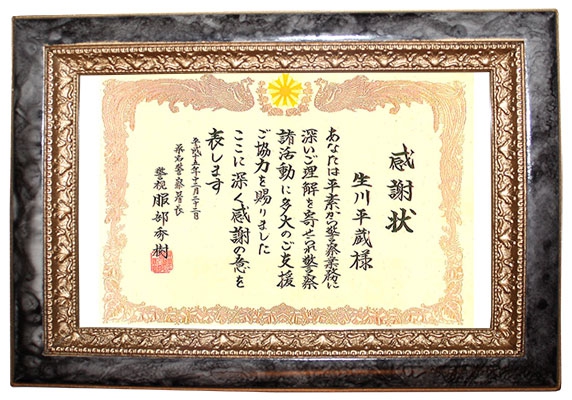 感謝状
生川平蔵様
あなたは平素から警察業務に
深いご理解を寄せられ警察
諸活動に多大のご支援
ご協力を賜りました
ここに深く感謝の意を
表します
平成十五年十二月二十二日
桑名警察署長
警視 服部秀樹